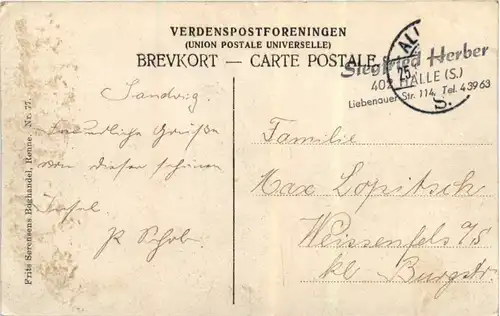 VERDENSPOSTFORENINGEN
(UNION POSTALE UNIVERSELLE)
BREVKORT — CARTE POSTALE
Siegfried Herber
402 HALLE (S.)
Liebenauer Str. 114, Tel. 43963
25
S.
Sandvig.
Freundliche Grüße
von dieser schönen
Insel
Familie
Max Lopitzsch
Weissenfels a/S
kl Burgstr.
Frits Sørensens Boghandel, Rønne. Nr. 77.